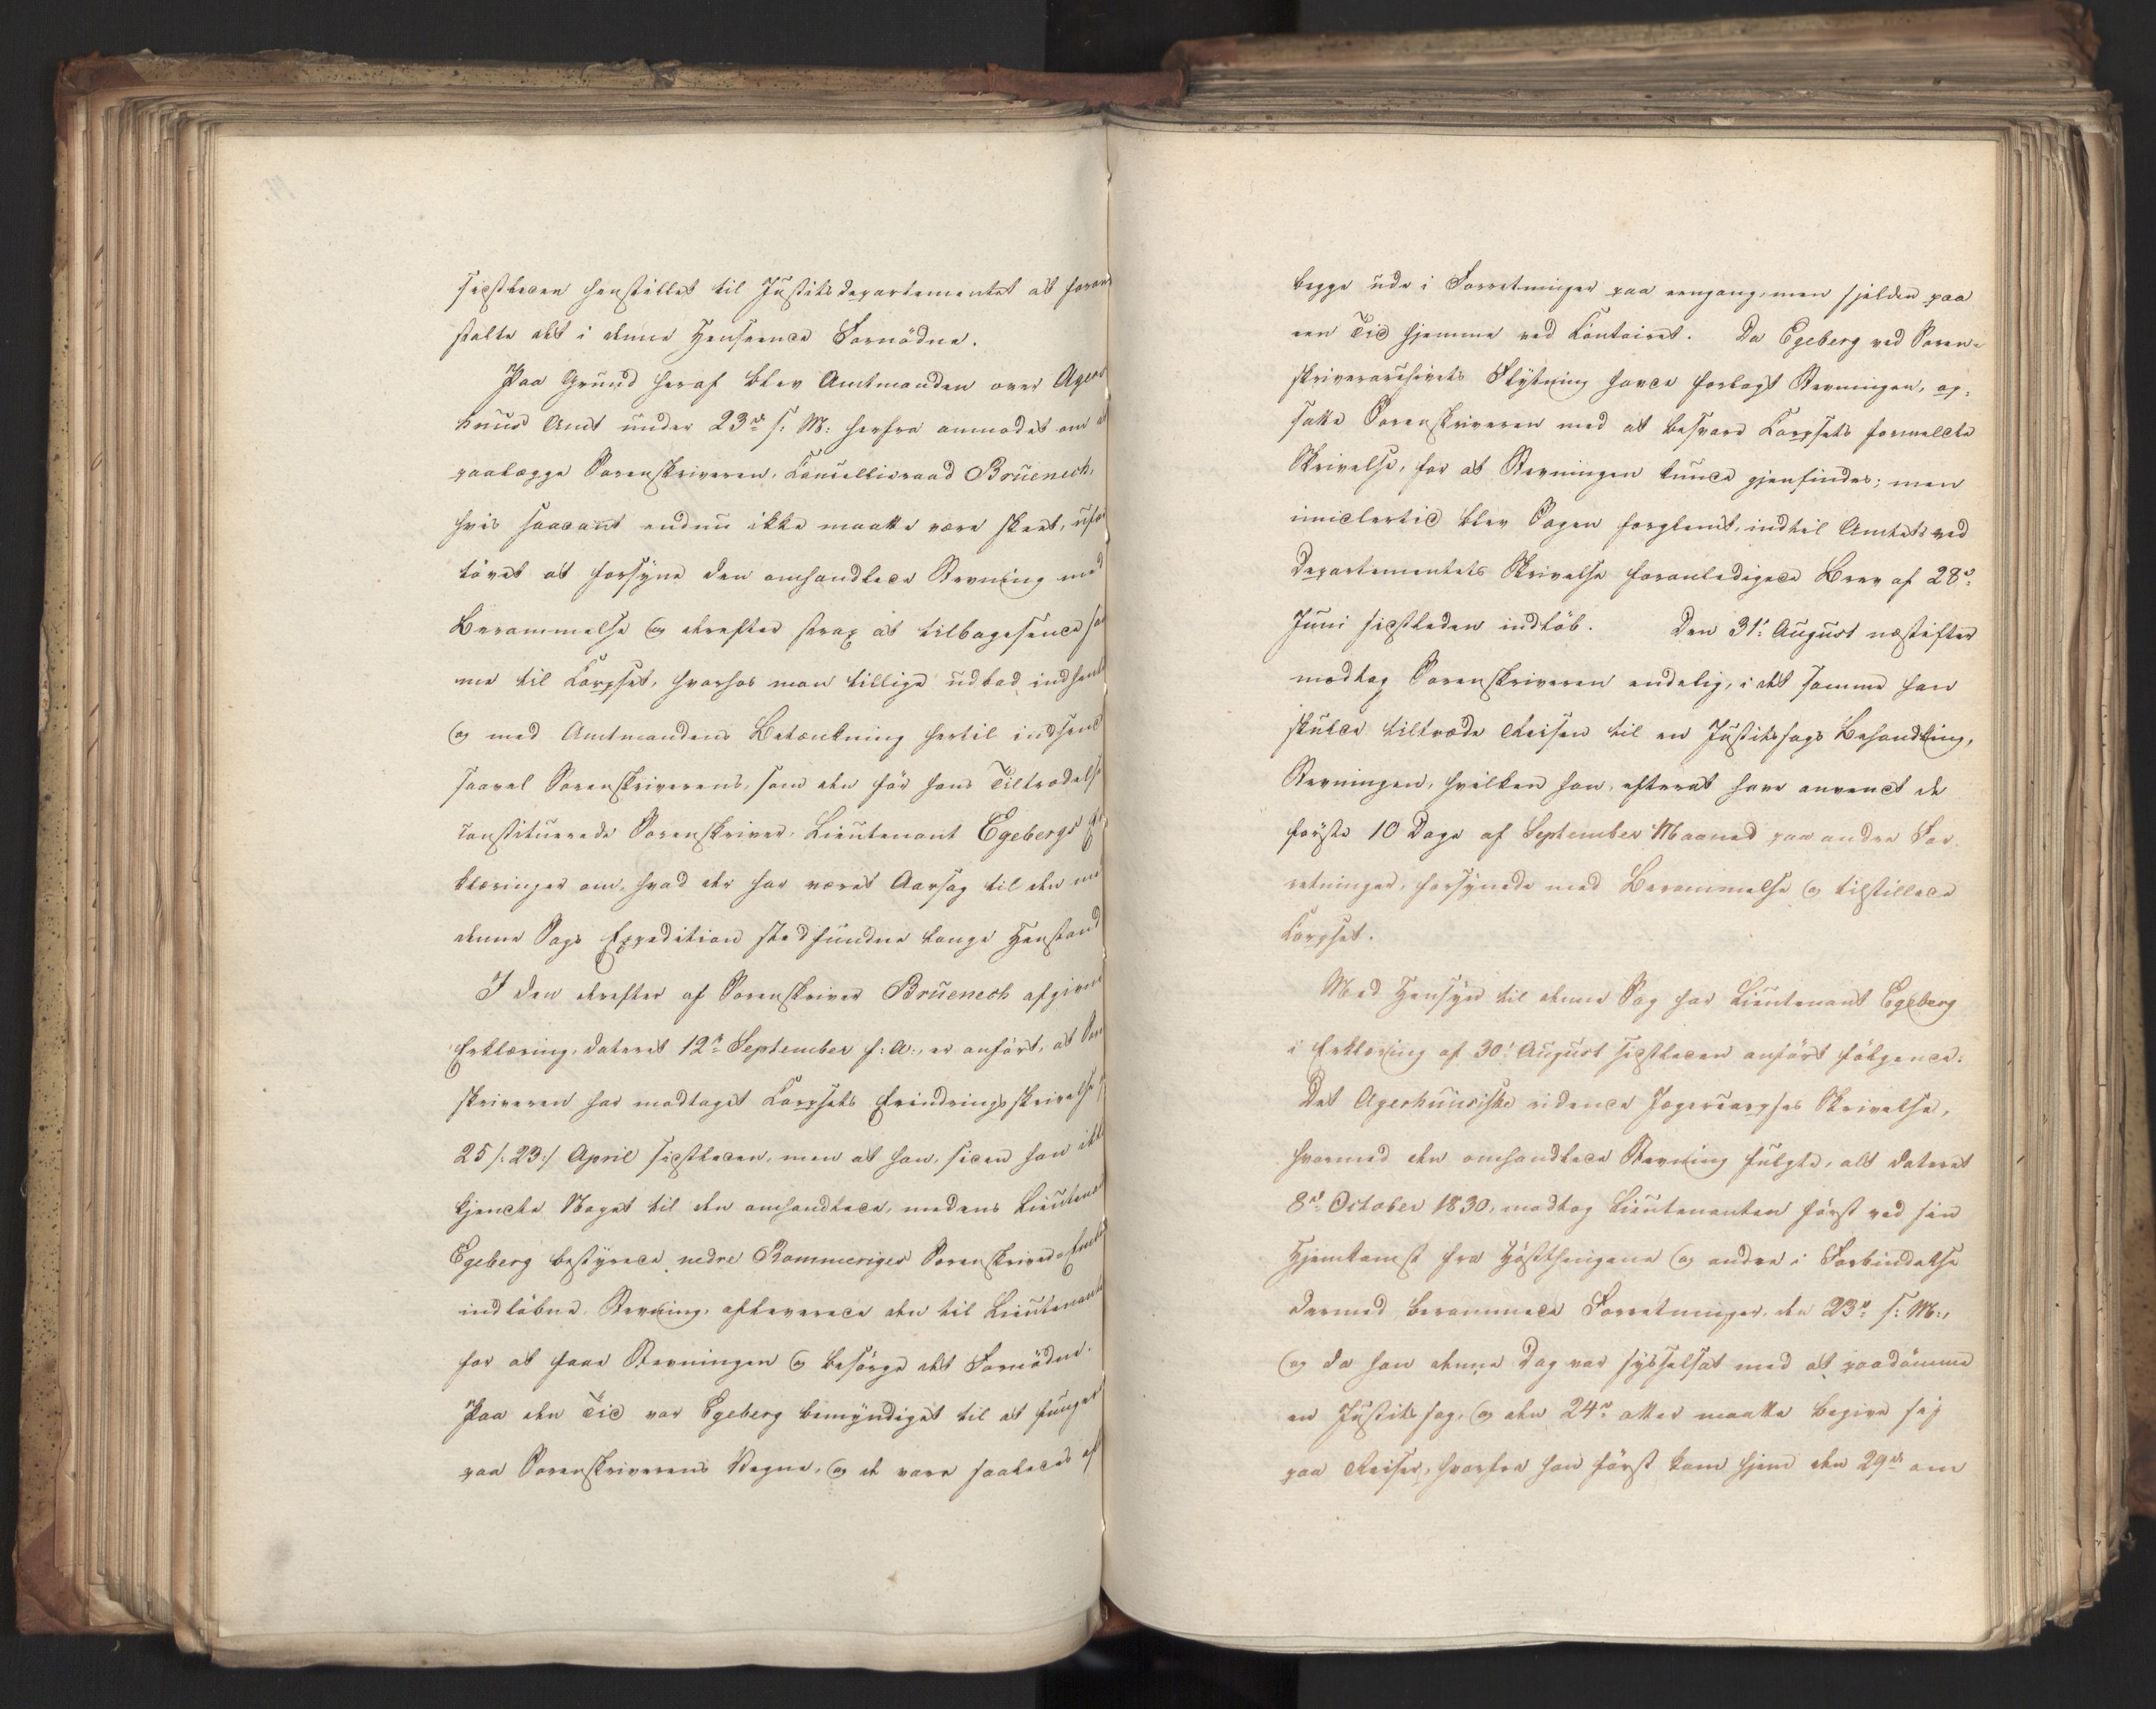 sidstleden henstillet til Justitsdepartementet at foran
stalte det i denne Henseende Fornödne.
Paa Grund heraf blev Amtmanden over Agers
huus Amt under 23de s: M: herfra anmodet om at
paalægge Sorenskriveren, Cancelliraad Brüenech,
hvis saadant endnu ikke maatte være skeet, ufor
tövet at forsyne den omhandlede Stevning med
Berammelse og derefter strax at tilbagesende sam
me til Corpset, hvorhos man tillige udbad indhent
og med Amtmandens Betænkning hertil indsendt
saavel Sorenskriverens, som den för hans Tiltrædelse
constituerede Sorenskriver, Lieutenant Egebergs Er
klæringer om, hvad der har været Aarsag til den med
denne Sags Expedition stedfundne lange Henstand
I den derefter af Sorenskriver Brüenech afgivne
Erklæring, dateret 12te September f: A:, er anfört, at Soren
skriveren har modtaget Corpsets Erindringsskrivelse
25 /: 23 :/ April sidstleden, men at han, siden han ikke
kjendte Noget til den omhandlede, medens Lieutenant
Egeberg bestyrede nedre Rommeriges Sorenskriverembede
indlöbne Stevning, afleverede den til Lieutenanten
for at faae Stevningen og besörge det Fornödne.
Paa den Tid var Egeberg bemyndiget til at fungere
paa Sorenskriverens Vegne, og de vare saaledes oft
begge ude i Forretninger paa eengang, men sjelden paa
een Tid hjemme ved Contoiret. Da Egeberg ved Soren-
skriverarchivets Flytning havde forlagt Stevningen, op-
satte Sorenskriveren med at besvare Corpsets formeldte
Skrivelse, for at Stevningen kunde gjenfindes; men
imidlertid blev Sagen forglemt, indtil Amtets ved
Departementets Skrivelse foranledigede Brev af 28de
Juni sidstleden indlöb. Den 31te August næstefter
modtog Sorenskriveren endelig, i det samme han
skulde tiltræde Reisen til en Justitssags Behandling,
Stevningen, hvilken han, efterat have anvendt de
förste 10 Dage af September Maaned paa andre For-
retninger, forsynede med Berammelse og tilstillede
Corpset.
Med Hensyn til denne Sag har Lieutenant Egeberg
i Erklæring af 30te August sidstleden anfört fölgende:
Det Agershuusiske ridende Jægercorpses Skrivelse,
hvormed den omhandlede Stevning fulgte, alt dateret
8de October 1830, modtog Lieutenanten först ved sin
Hjemkomst fra Höstthingene og andre i Forbindelse
dermed berammede Forretninger, den 23de s: M:,
og da han denne Dag var sysselsat med at paadömme
en Justitssag, og den 24de atter maatte begive sig
paa Reiser, hvorfra han först kom hjem den 29de om